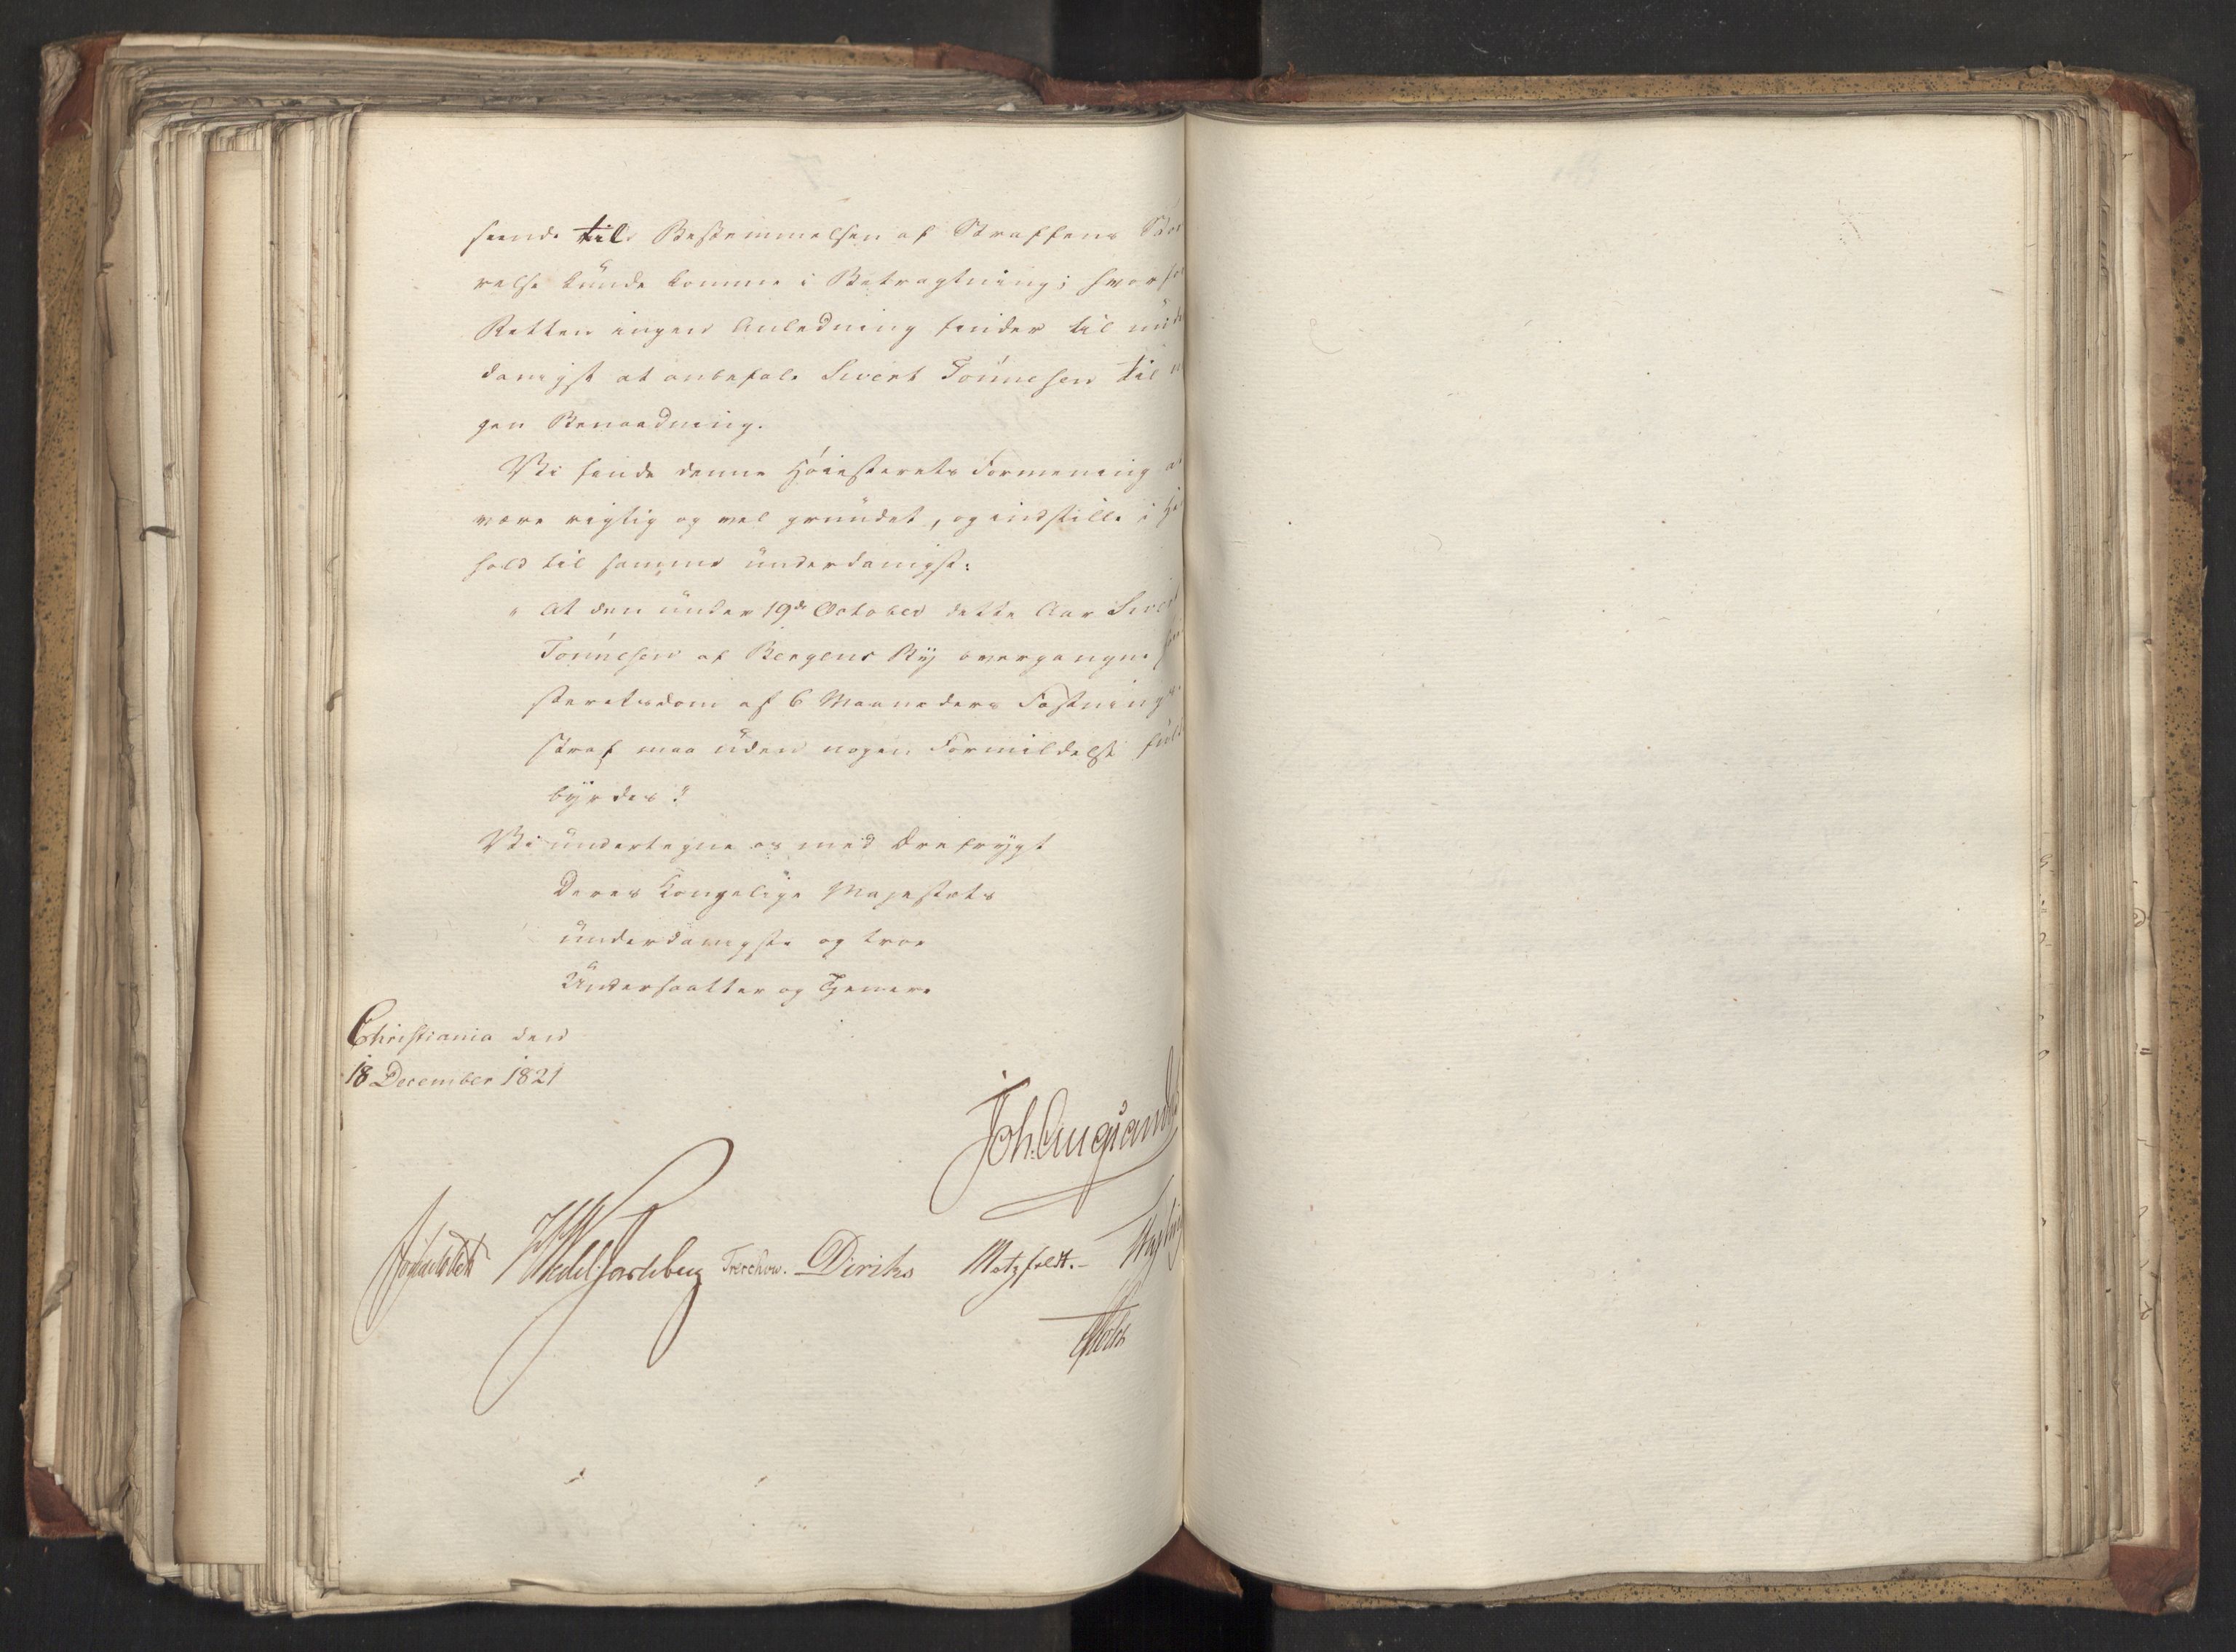 seende til Bestemmelsen af Straffens Stør
relse kunde komme i Betragtning; hvorfor
Retten ingen Anledning finder til under
danigst at anbefale Sivert Tønnesen til no
gen Benaadning.
Vi finde denne Høiesterets Formening at
være rigtig og vel grundet, og indstille i Hen
hold til samme underdanigst:
" At den under 19de October dette Aar Sivert
Tønnesen af Bergens By overgangne Høie
steretsdom af 6 Maaneders Fæstnings
straf maa uden nogen Formildelse fuld
byrdes."
Vi undertegne os med Ærefrygt
Deres Kongelige Majestæts
underdanigste og troe
Undersaatter og Tjenere
Christiania den
18 December 1821
Joh. Aug. Sandels
Sommerhielm WedelJarlsberg Treschow. Diriks Motzfeldt.
Holst